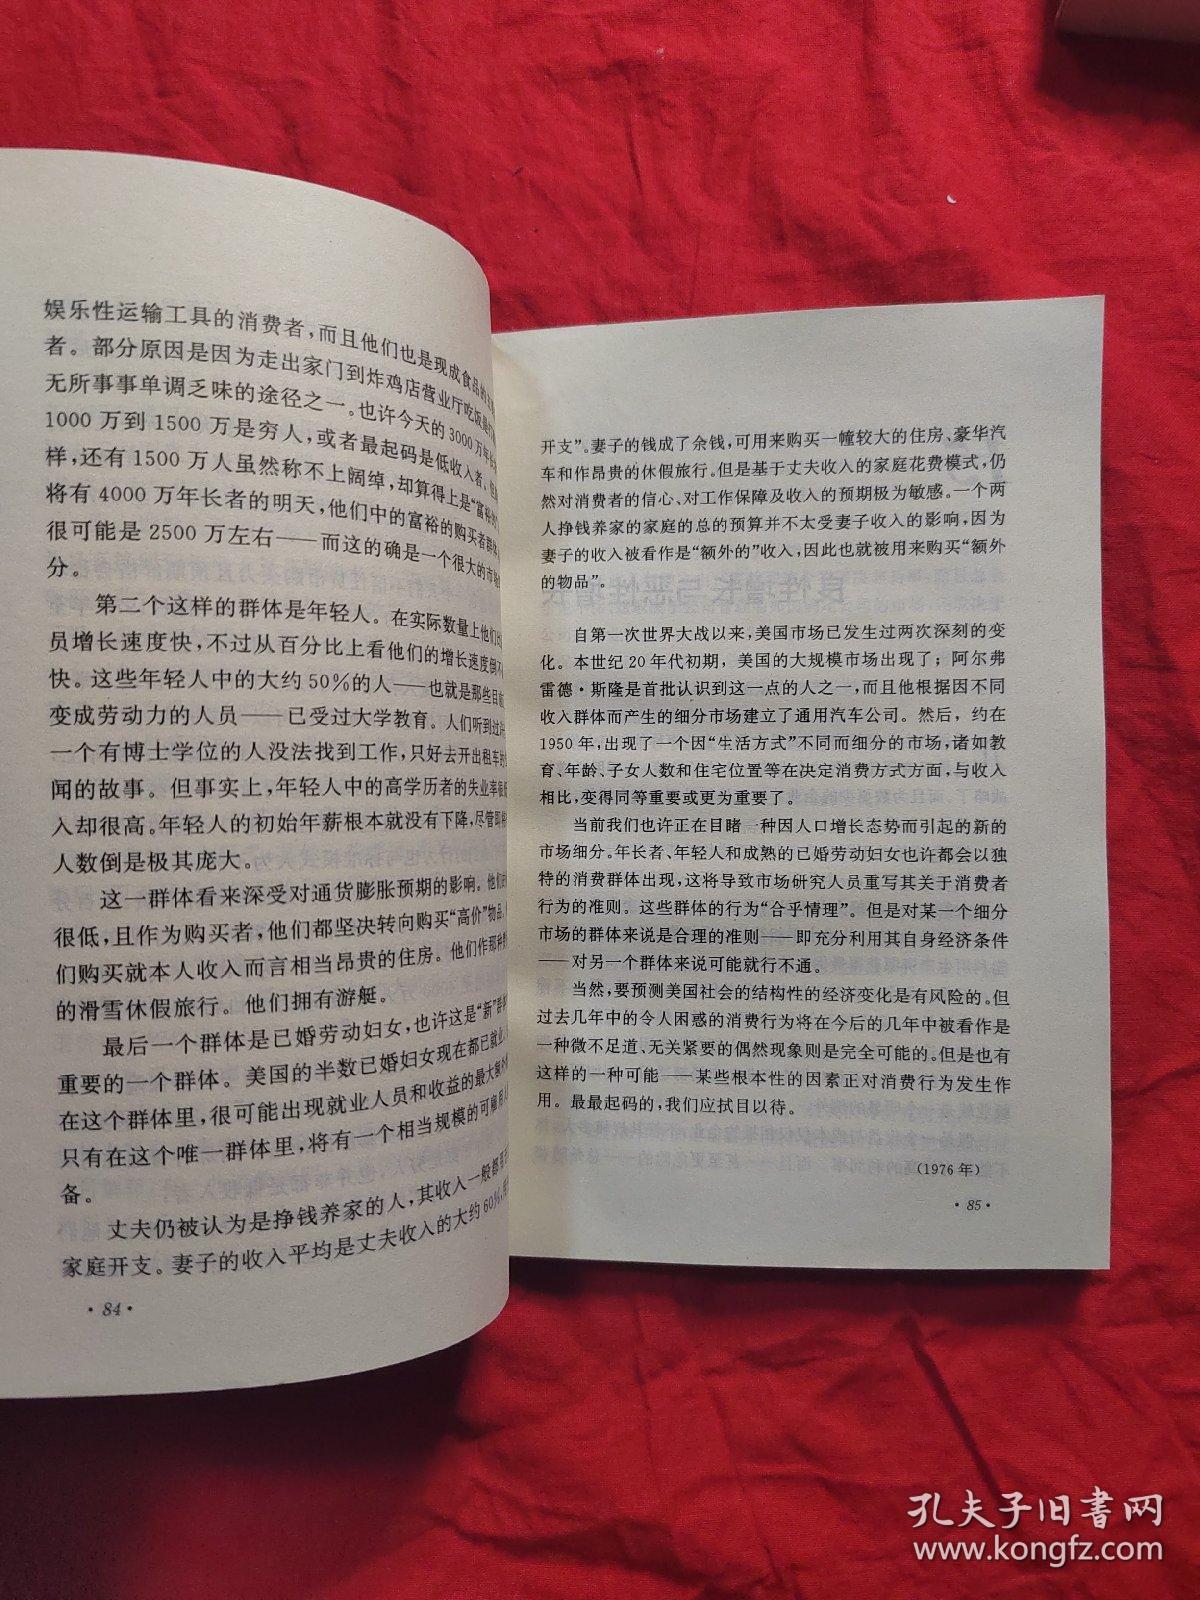 娱乐性运输工具的消费者，而且他们也是现成食品的
者。部分原因是因为走出家门到炸鸡店营业厅吃饭
无所事事单调乏味的途径之一。也许今天的3000万年
1000万到1500万是穷人，或者最起码是低收入者，
样，还有1500万人虽然称不上阔绰，却算得上是“富裕
将有4000万年长者的明天，他们中的富裕的购买者群体
很可能是2500万左右——而这的确是一个很大的市场
分。
第二个这样的群体是年轻人。在实际数量上他们
员增长速度快，不过从百分比上看他们的增长速度倒不
快。这些年轻人中的大约50%的人——也就是那些目前
变成劳动力的人员——已受过大学教育。人们听到过
一个有博士学位的人没法找到工作，只好去开出租车
闻的故事。但事实上，年轻人中的高学历者的失业率很
入却很高。年轻人的初始年薪根本就没有下降，尽管即
人数倒是极其庞大。
这一群体看来深受对通货膨胀预期的影响。他们
很低，且作为购买者，他们都坚决转向购买“高价”物品，
们购买就本人收入而言相当昂贵的住房。他们作那种
的滑雪休假旅行。他们拥有游艇。
最后一个群体是已婚劳动妇女，也许这是“新”群
重要的一个群体。美国的半数已婚妇女现在都已就业，
在这个群体里，很可能出现就业人员和收益的最大额
只有在这个唯一群体里，将有一个相当规模的可雇用
备。
丈夫仍被认为是挣钱养家的人，其收入一般都
家庭开支。妻子的收入平均是丈夫收入的大约60%，
·84·
开支”。妻子的钱成了余钱，可用来购买一幢较大的住房、豪华汽
车和作昂贵的休假旅行。但是基于丈夫收入的家庭花费模式，仍
然对消费者的信心、对工作保障及收入的预期极为敏感。一个两
人挣钱养家的家庭的总的预算并不太受妻子收入的影响，因为
妻子的收入被看作是“额外的”收入，因此也就被用来购买“额外
的物品”。
自第一次世界大战以来，美国市场已发生过两次深刻的变
化。本世纪20年代初期，美国的大规模市场出现了；阿尔弗
雷德·斯隆是首批认识到这一点的人之一，而且他根据因不同
收入群体而产生的细分市场建立了通用汽车公司。然后，约在
1950年，出现了一个因“生活方式”不同而细分的市场，诸如教
育、年龄、子女人数和住宅位置等在决定消费方式方面，与收入
相比，变得同等重要或更为重要了。
当前我们也许正在目睹一种因人口增长态势而引起的新的
市场细分。年长者、年轻人和成熟的已婚劳动妇女也许都会以独
特的消费群体出现，这将导致市场研究人员重写其关于消费者
行为的准则。这些群体的行为“合乎情理”。但是对某一个细分
市场的群体来说是合理的准则——即充分利用其自身经济条件
——对另一个群体来说可能就行不通。
当然，要预测美国社会的结构性的经济变化是有风险的。但
过去几年中的令人困惑的消费行为将在今后的几年中被看作是
一种微不足道、无关紧要的偶然现象则是完全可能的。但是也有
这样的一种可能——某些根本性的因素正对消费行为发生作
用。最最起码的，我们应拭目以待。
（1976年）
·85·
孔夫子旧书网
www.kongfz.com